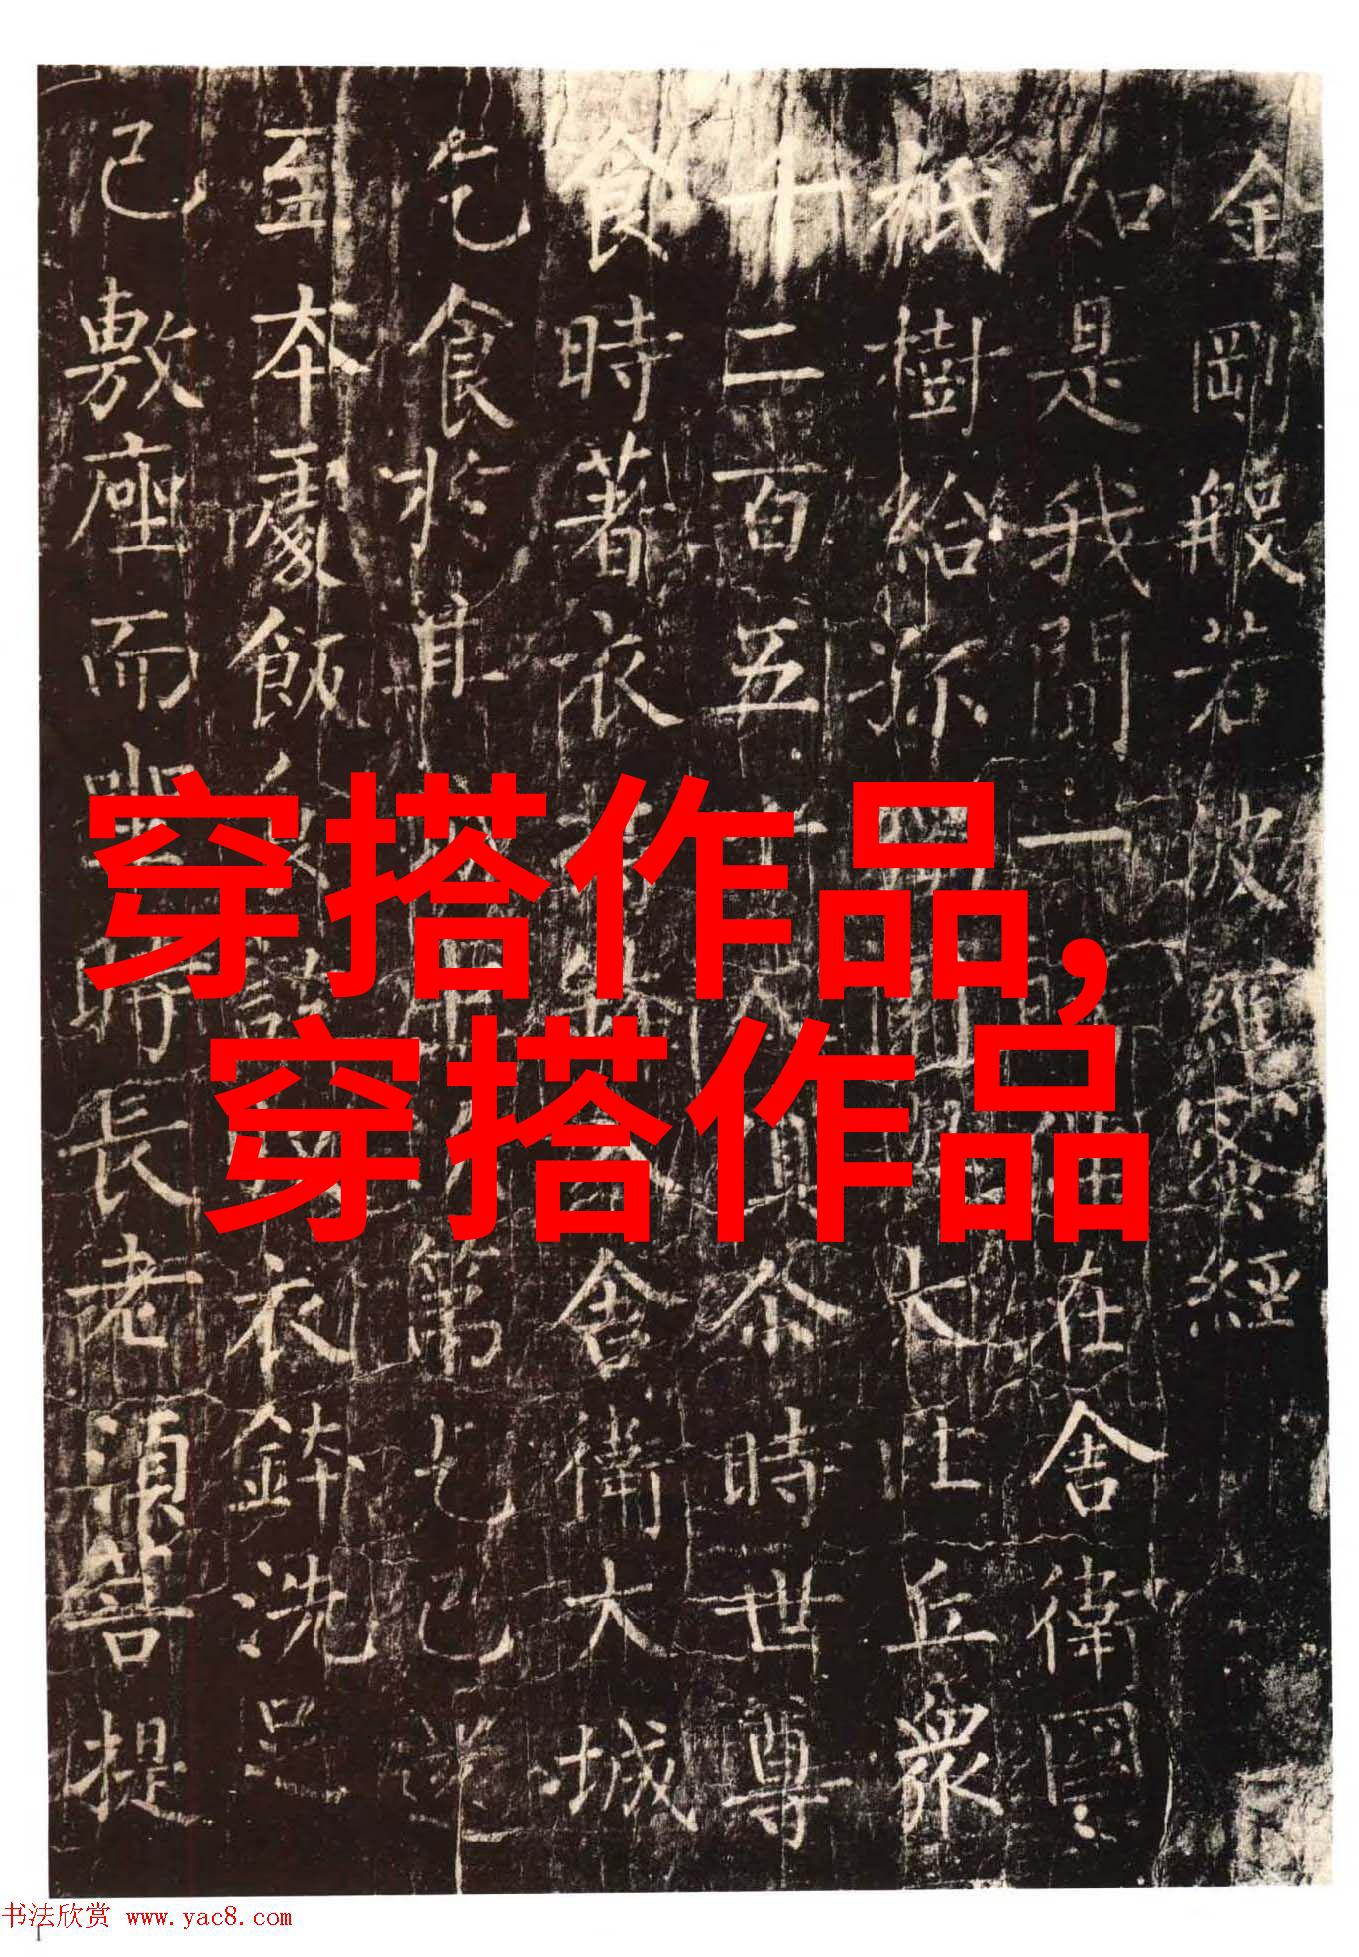 金剛般若波羅蜜經
如是我聞一在舍衛國
祇樹給孤大比丘眾
千二百五十人俱尒時世尊
食時著衣持鉢入舍衛大城
乞食於其城中次第乞已還
至本處飯食訖收衣鉢洗足
已敷座而坐時長老須菩提
穿搭作品,
穿搭作品
书法欣赏 www.yac8.com